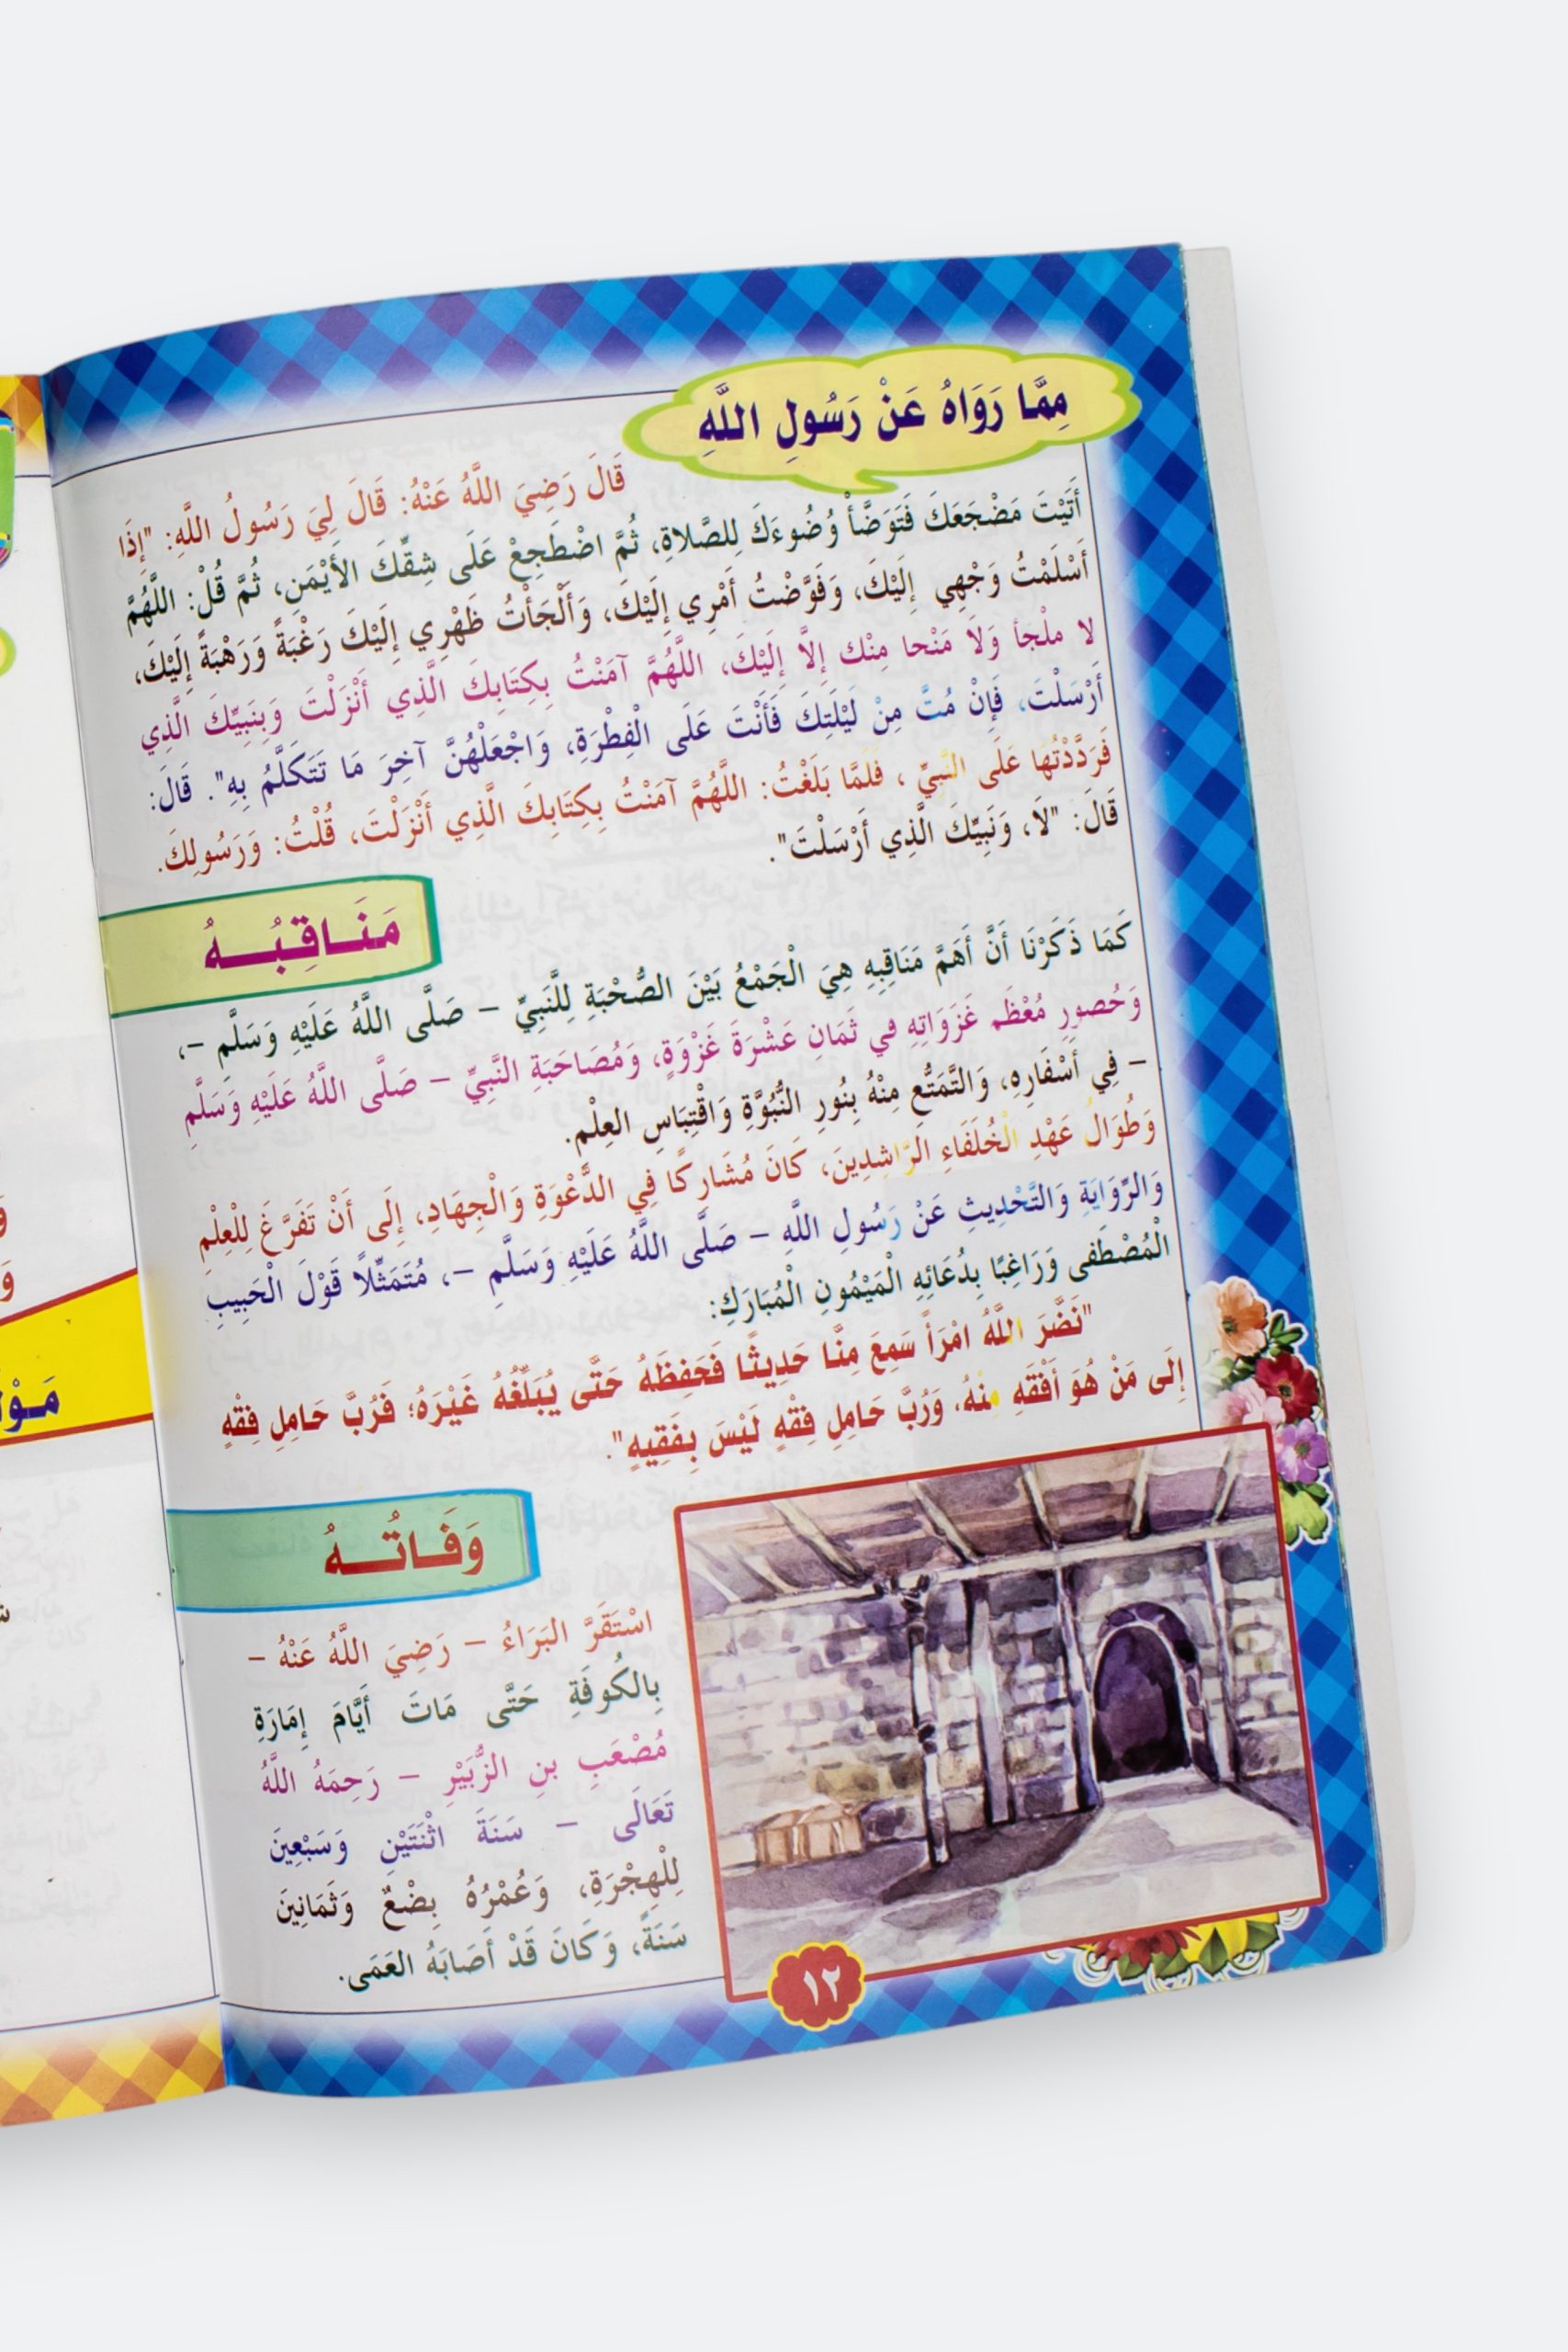 مِمَّا رَوَاهُ عَنْ رَسُولِ اللَّهِ
قَالَ رَضِيَ اللَّهُ عَنْهُ: قَالَ لِيَ رَسُولُ اللَّهِ: "إِذَا
أَتَيْتَ مَضْجَعَكَ فَتَوَضَّأْ وُضُوءَكَ لِلصَّلاةِ، ثُمَّ اضْطَجِعْ عَلَى شِقِّكَ الأَيْمَنِ، ثُمَّ قُلْ: اللَّهُمَّ
أَسْلَمْتُ وَجْهِي إِلَيْكَ، وَفَوَّضْتُ أَمْرِي إِلَيْكَ، وَأَلْجَأْتُ ظَهْرِي إِلَيْكَ رَغْبَةً وَرَهْبَةً إِلَيْكَ،
لا ملْجأ وَلاَ مَنْحا مِنْك إِلاَّ إِلَيْكَ، اللَّهُمَّ آمَنْتُ بِكِتَابِكَ الَّذِي أَنْزَلْتَ وَبِنَبِيِّكَ الَّذِي
أَرْسَلْتَ، فَإِنْ مُتَّ مِنْ لَيْلَتِكَ فَأَنْتَ عَلَى الْفِطْرَةِ، وَاجْعَلْهُنَّ آخِرَ مَا تَتَكَلَّمُ بِهِ". قَالَ:
فَرَدَّدْتُهَا عَلَى النَّبِيِّ ، فَلَمَّا بَلَغْتُ: اللَّهُمَّ آمَنْتُ بِكِتَابِكَ الَّذِي أَنْزَلْتَ، قُلْتُ: وَرَسُولِكَ.
قَالَ: "لاَ، وَنَبِيِّكَ الَّذِي أَرْسَلْتَ".
مَنَـاقِبُـــهُ
كَمَا ذَكَرْنَا أَنَّ أَهَمَّ مَنَاقِبِهِ هِيَ الْجَمْعُ بَيْنَ الصُّحْبَةِ لِلنَّبِيِّ – صَلَّى اللَّهُ عَلَيْهِ وَسَلَّم –،
وَحُصورِ مُعْظَم غَزَوَاتِهِ في ثَمَانِ عَشْرَةَ غَزْوَةٍ، وَمُصَاحَبَةِ النَّبِيِّ – صَلَّى اللَّهُ عَلَيْهِ وَسَلَّمِ
– فِي أَسْفَارِهِ، وَالتَّمَتُّعِ مِنْهُ بِنُورِ النُّبُوَّةِ وَاقْتِبَاسِ العِلْمِ.
وَطُوَالَ عَهْدِ الْخُلَفَاءِ الرَّاشِدِينَ، كَانَ مُشَارِكًا فِي الدَّعْوَةِ وَالْجِهَادِ، إِلَى أَنْ تَفَرَّغَ لِلْعِلْمِ
وَالرِّوَايَةِ وَالتَّحْدِيثِ عَنْ رَسُولِ اللَّهِ – صَلَّى اللَّهُ عَلَيْهِ وَسَلَّمِ –، مُتَمَثِّلاً قَوْلَ الْحَبِيبِ
الْمُصْطَفى وَرَاغِبًا بِدُعَائِهِ الْمَيْمُونِ الْمُبَارَكِ:
"نَضَّرَ اللَّهُ امْرَأً سَمِعَ مِنَّا حَدِيثًا فَحَفِظَهُ حَتَّى يُبَلِّغُهُ غَيْرَهُ؛ فَرُبَّ حَامِلِ فِقْهٍ
إِلَى مَنْ هُوَ أَفْقَهِ مِنْهُ، وَرُبَّ حَامِلِ فِقْهٍ لَيْسَ بِفَقِيهٍ".
وَفَـاتُـــهُ
اسْتَقَرَّ البَرَاءُ – رَضِيَ اللَّهُ عَنْهُ –
بِالكُوفَةِ حَتَّى مَاتَ أَيَّامَ إِمَارَةِ
مُصْعَبِ بنِ الزُّبَيْرِ – رَحِمَهُ اللَّهُ
تَعَالَى – سَنَةَ اثْنَتَيْنِ وَسَبْعِينَ
لِلْهِجْرَةِ، وَعُمْرُهُ بِضْعٌ وَثَمَانِينَ
سَنَةً، وَكَانَ قَدْ أَصَابَهُ العَمَى.
١٢